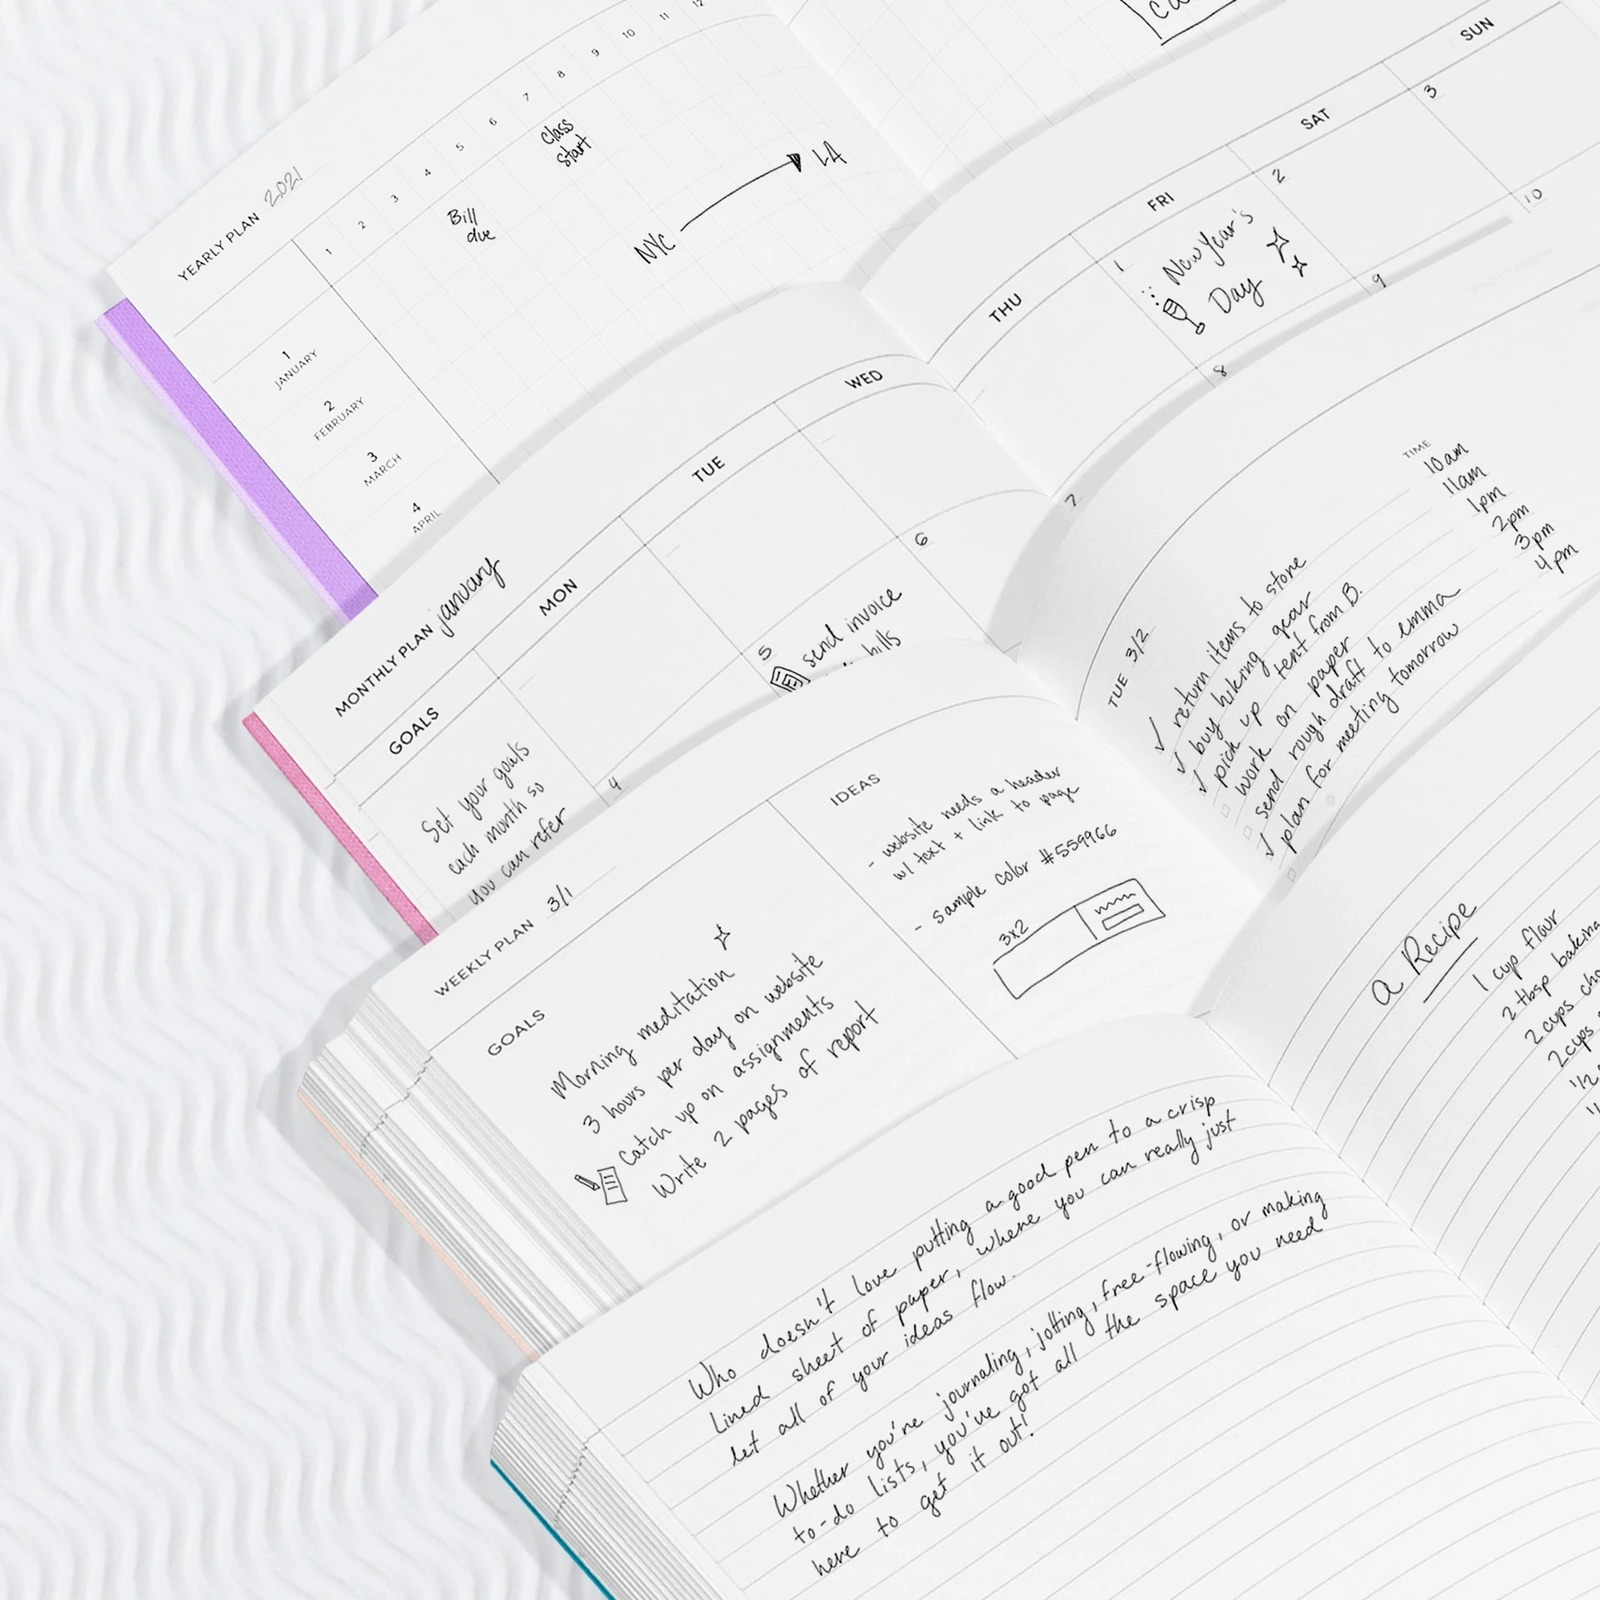 YEARLY PLAN 2021
1 2 3 4 5 6 7 8 9 10 11 12
Class
start
Bill
due
NYC
LA
1
JANUARY
2
FEBRUARY
3
MARCH
4
APRIL
MONTHLY PLAN january
GOALS
MON
TUE
WED
THU
FRI
SAT
SUN
1
2
3
New Year's
Day
4
5
6
7
8
9
10
send invoice
bills
Set your goals
each month so
you can refer
WEEKLY PLAN 3/1
GOALS
Morning meditation
3 hours per day on website
Catch up on assignments
Write 2 pages of report
IDEAS
- website needs a header
w/ text + link to page
- sample color #559966
3x2
TUE 3/2
TIME
return items to store
buy hiking gear
pick up tent from B.
work on paper
send rough draft to emma
plan for meeting tomorrow
10am
11am
1pm
2pm
3pm
4pm
Who doesn't love putting a good pen to a crisp
lined sheet of paper, where you can really just
let all of your ideas flow.
Whether you're journaling, jotting, free-flowing, or making
to-do lists, you've got all the space you need
here to get it out!
a Recipe
1 cup flour
2 tbsp baking
2 cups
2 cups
1/2